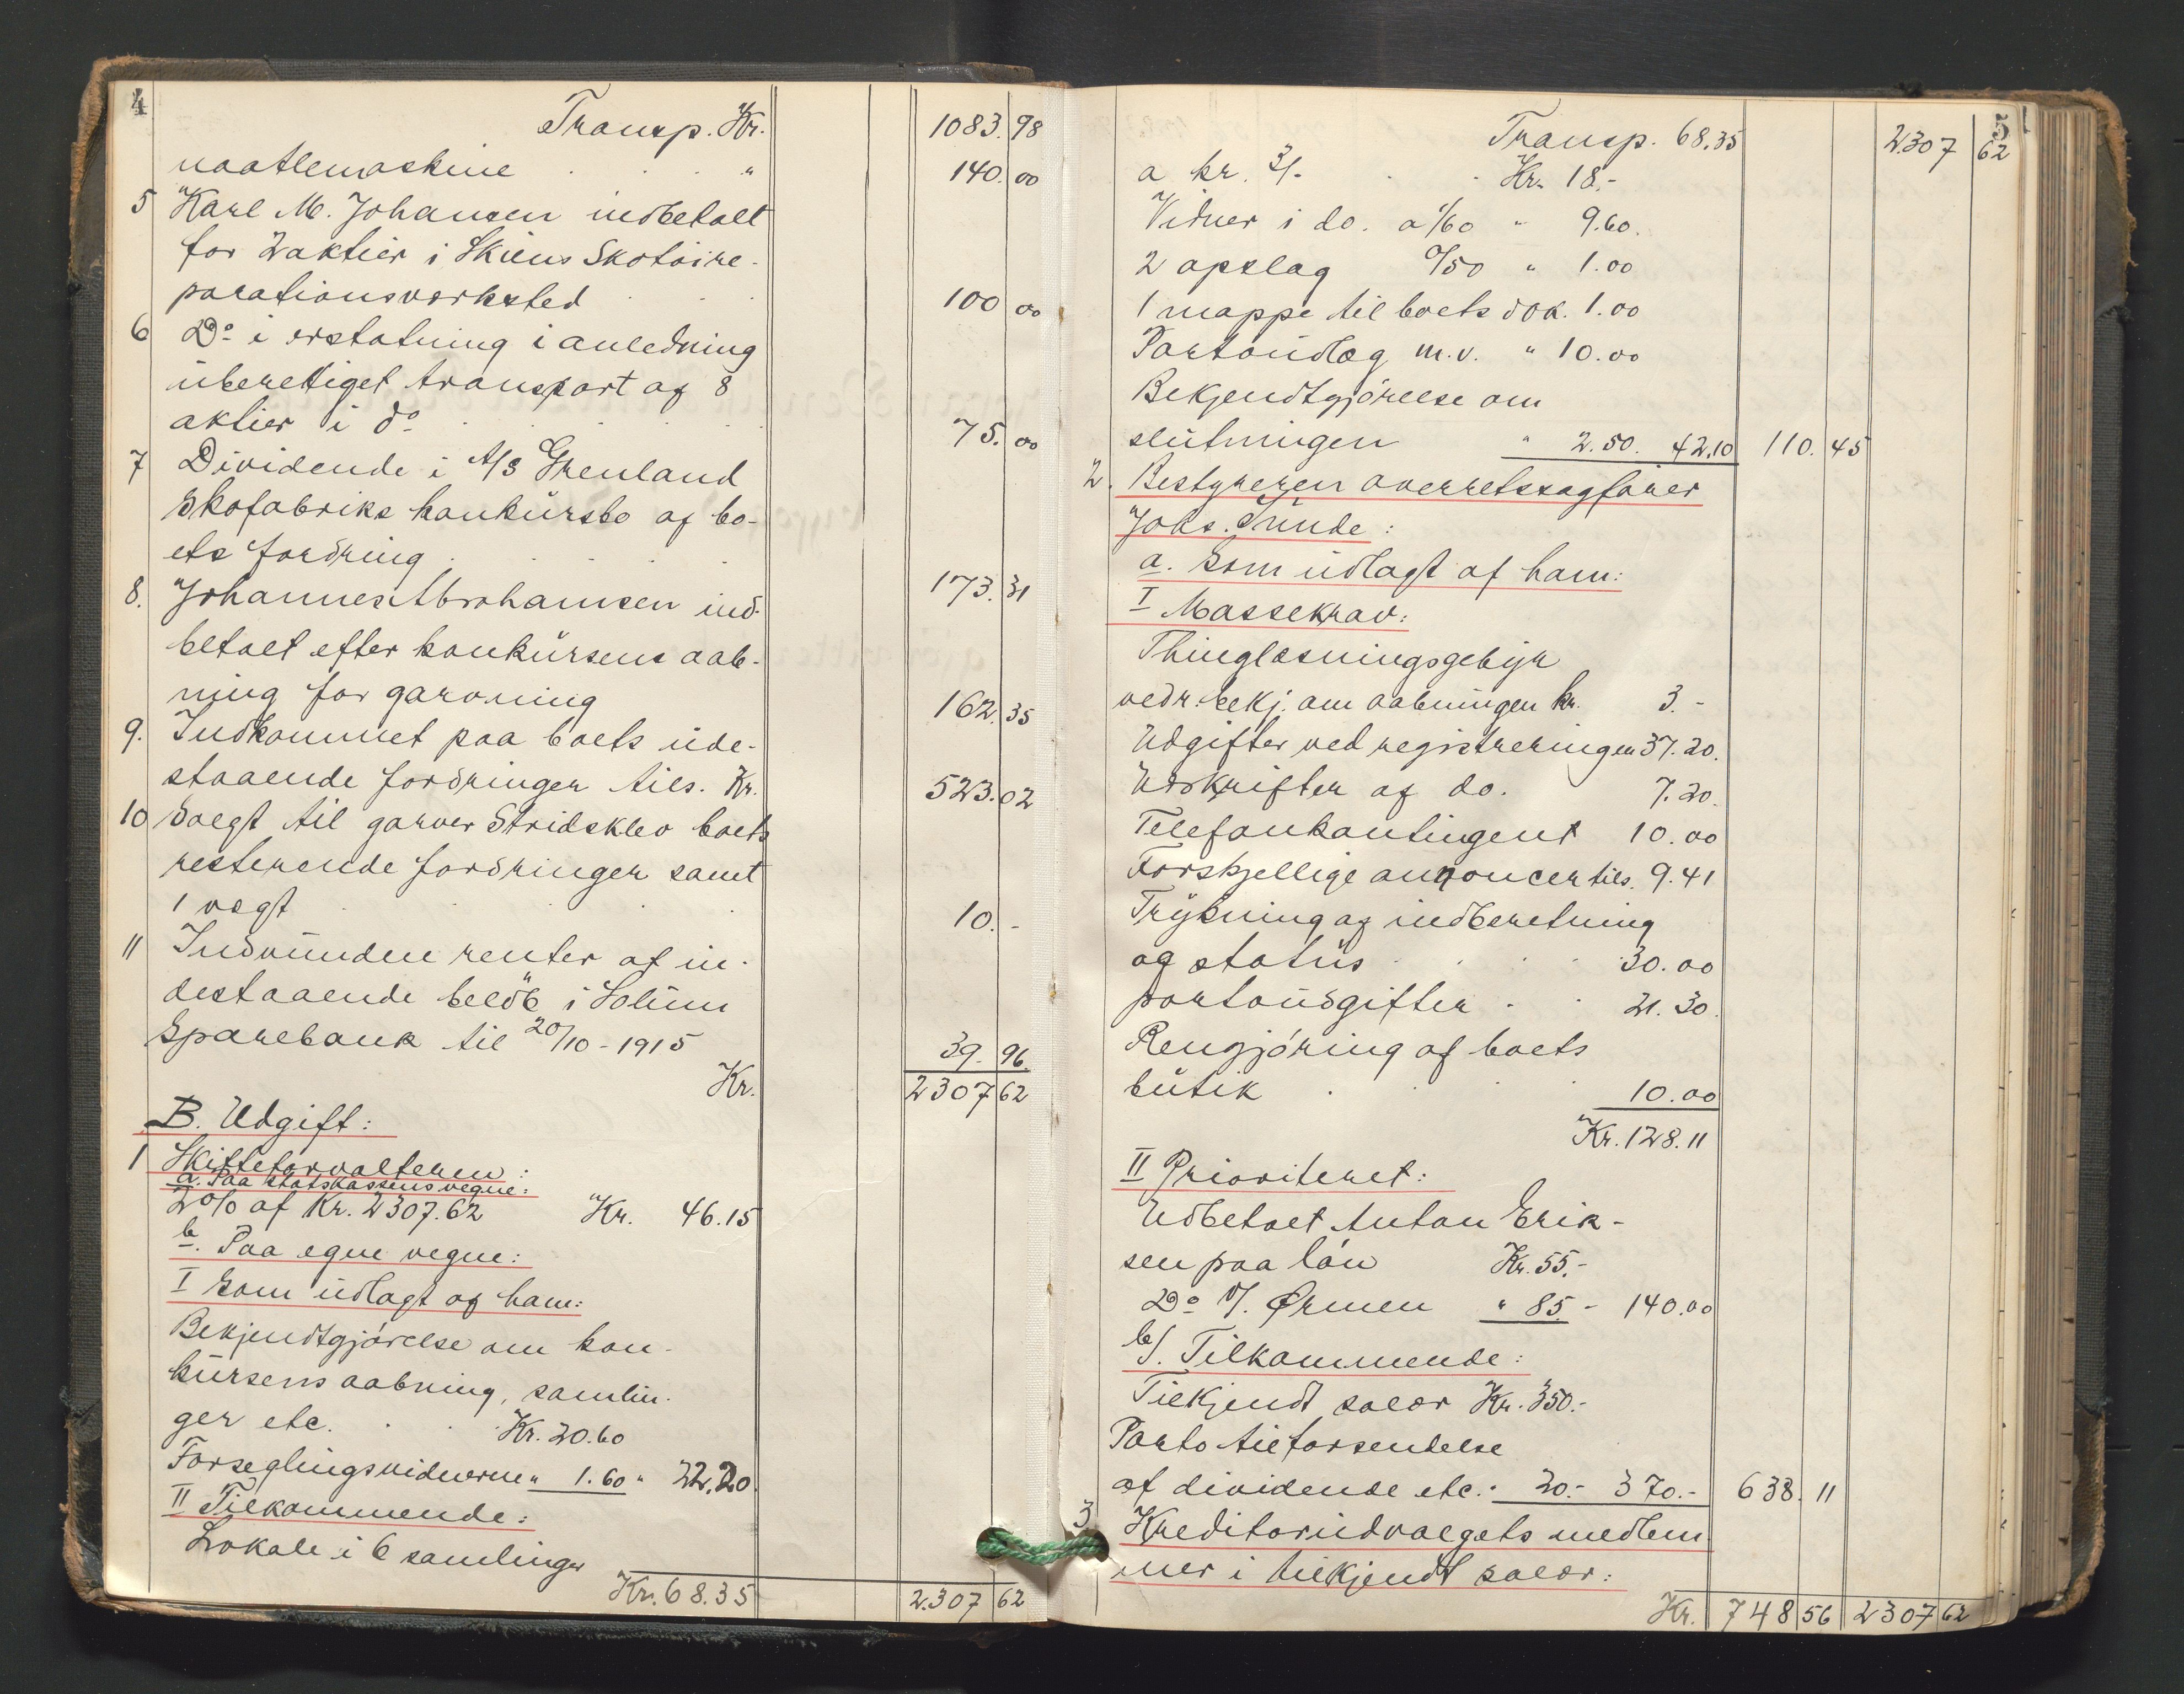 4
Transp. Kr. 1083. 98
naatlemaskine " 140. 00
5 Karl M. Johansen indbetalt
for 2 aktier i Skiens Skotøire-
parationsverksted 100 00
6 Do i erstatning i anledning
uberettiget transport af 8
aktier i do 75. 00
7 Dividende i A/S Grenland
Skofabriks konkursbo af bo-
ets fordring 173. 31
8. Johannes Abrahamsen ind-
betalt efter konkursens aab-
ning for garvning 162. 35
9. Indkommet paa boets ude-
staaende fordringer tils. Kr. 523. 02
10 Solgt til garver Stridsklev boets
resterende fordringer samt
1 vægt 10. -
11 Indvundne renter af in-
destaaende beløb i Solum
Sparebank til 20/10 - 1915 39. 96.
Kr. 2307 62
B. Udgift:
1 Skifteforvalteren:
a. Paa statskassens vegne:
2% af Kr. 2307.62 Kr. 46.15
b. Paa egne vegne:
I Som udlagt af ham:
Bekjendtgjørelse om kon-
kursens aabning, samlin-
ger etc. Kr. 20.60
Forseglingsvidnerne " 1.60 " 22.20
II Tilkommende:
Lokale i 6 samlinger
Kr. 68.35 2.307 62
5
Transp. 68.35 2307 62
a kr. 3/- Kr. 18.-
Vidner i do. a 1/60 " 9.60.
2 opslag 0/50 " 1.00
1 mappe til boets dok. 1.00
Portoudlæg m.v. " 10.00
Bekjendtgjørelse om
slutningen " 2.50. 42.10 110. 45
2. Bestyreren overretssagfører
Johs. Tunde:
a. Som udlagt af ham:
I Massekrav:
Thinglæsningsgebyr
vedr. bekj. om aabningen kr. 3.-
Udgifter ved registreringen 37.20.
Udskrifter af do. 7.20.
Telefonkontingent 10.00
Forskjellige annoncer tils. 9.41
Trykning af indberetning
og status 30.00
portoudgifter 21.30.
Rengjøring af boets
butik 10.00
Kr. 128.11
II Prioritet:
Udbetalt Anton Erik-
sen paa løn Kr. 55.-
Do V. Ørmen " 85.- 140.00
b). Tilkommende:
Tilkjendt salær Kr. 350.-
Porto til forsendelse
af dividende etc. " 20.- 370.- 638. 11
3 Kreditorudvalgets medlem
mer i tilkjendt salær:
Kr. 748 56 2307 62